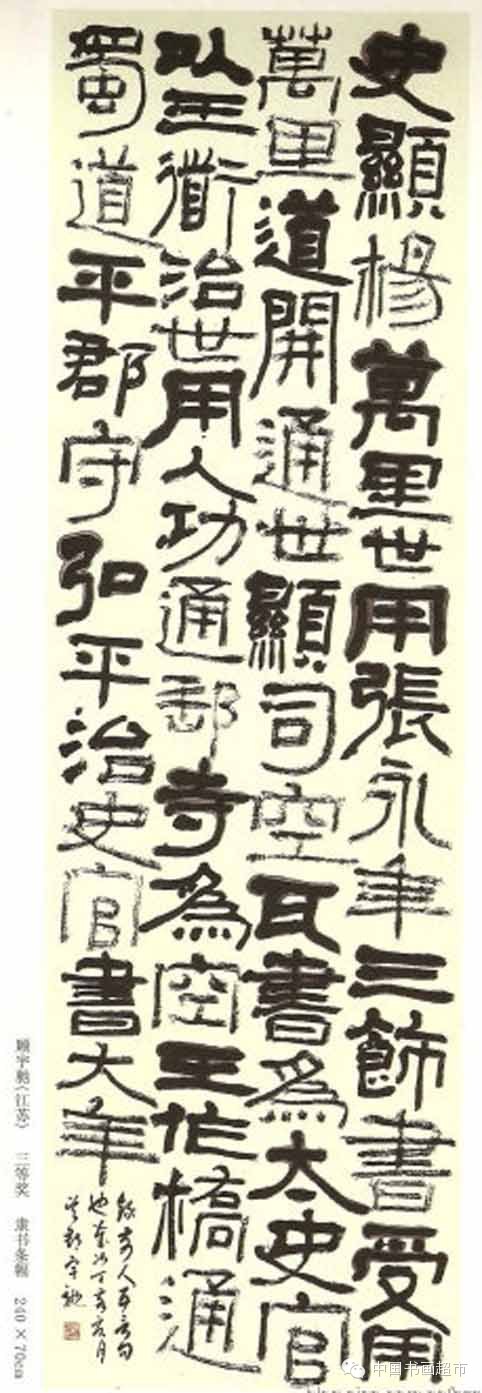 史顯楊萬里世用張永年三飾書受用
萬里道開通世顯司空瓦書為太史官
以王衜治世用人功通郵寺為空王作橋通
蜀道平郡守弘平治史官書大年
顾宇驰(江苏) 三等奖 隶书条幅 240×70cm
中国书画超市